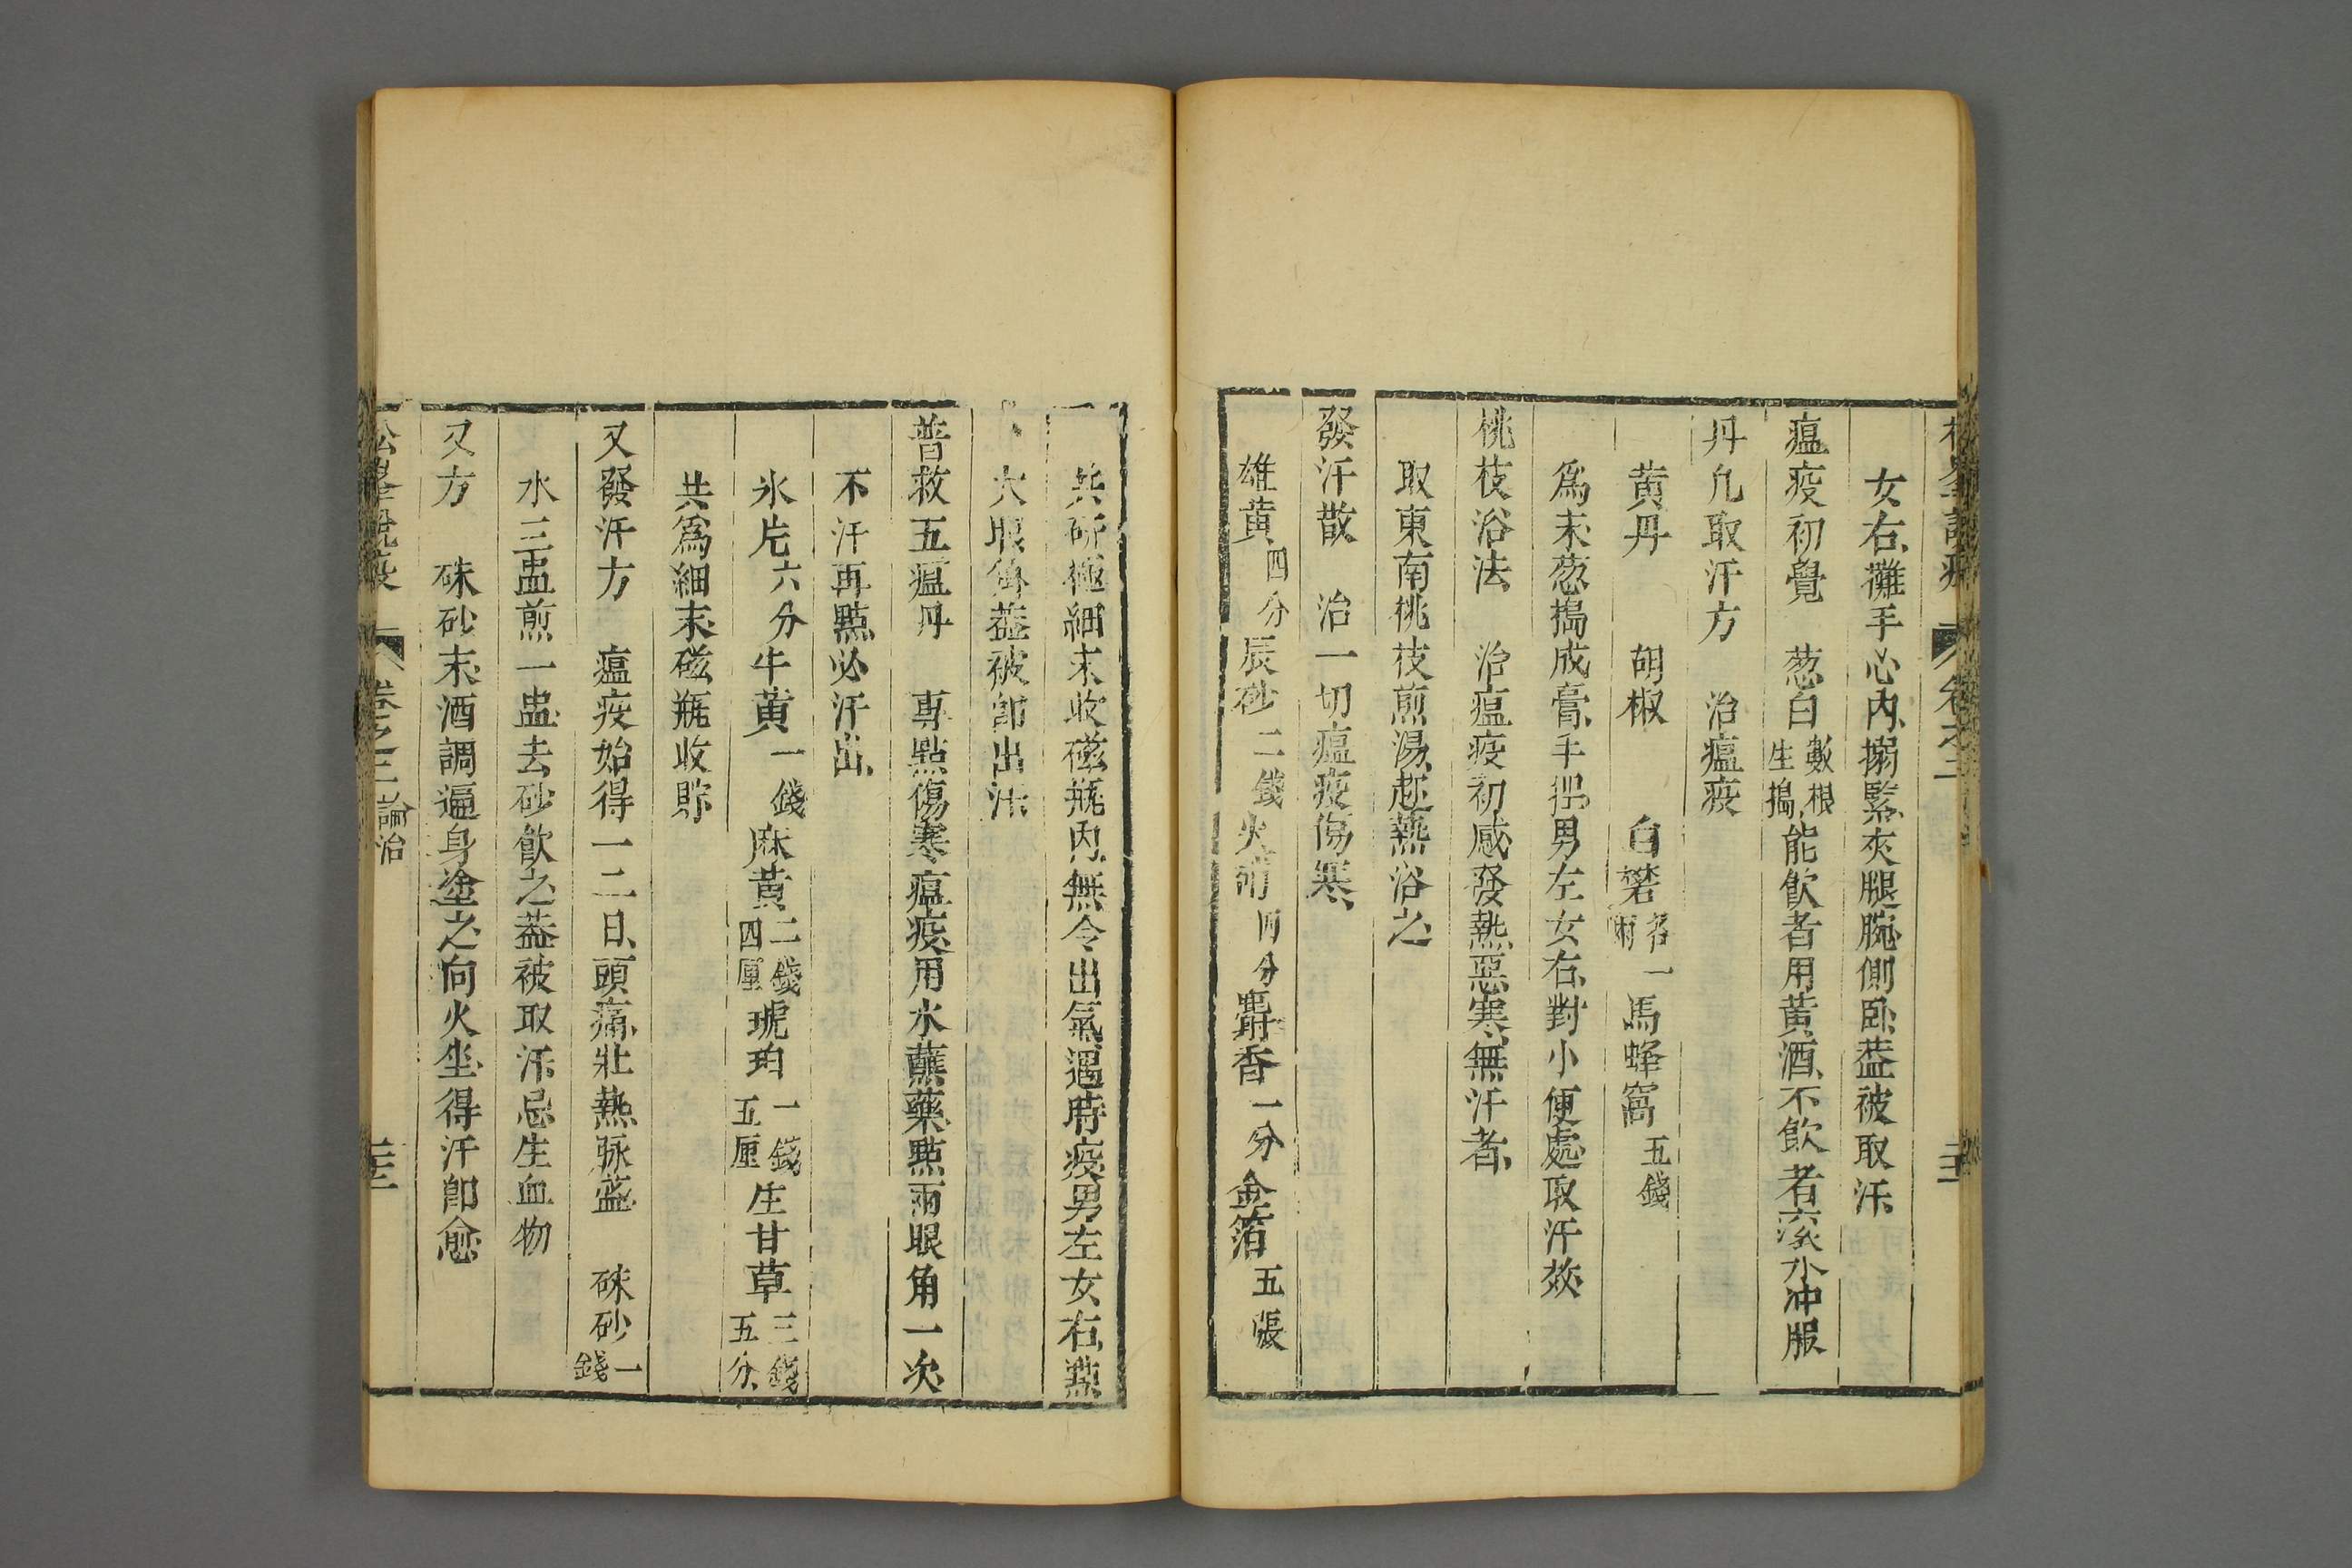 松峯說疫 卷之三
女右、攤手心內、搦緊、夾腿腕側卧、葢被取汗、
瘟疫初覺　葱白數根生搗、能飲者用黃酒、不飲者滚水冲服
丹凢取汗方　治瘟疫
黃丹　胡椒　白礬各一兩 馬蜂窩五錢
爲末、葱搗成膏、手揑、男左女右、對小便處、取汗效
桃枝浴法　治瘟疫初感、發熱、惡寒、無汗者、
取東南桃枝煎湯、趂熱浴之
發汗散　治一切瘟疫傷寒、
雄黃四分 辰砂二錢 火硝四分 麝香一分 金箔五張
共研極細末、收磁瓶內、無令出氣、遇時疫、男左女右、蘸
大眼角、葢被卽出汗
普救五瘟丹　專點傷寒瘟疫、用水蘸藥、點兩眼角一次、
不汗再點、必汗出、
氷片六分 牛黃一錢 麻黃二錢四厘 琥珀一錢五厘 生甘草三錢五分、
共爲細末、磁瓶收貯
又發汗方　瘟疫始得一二日、頭痛、壯熱脉盛　硃砂一錢
水三盅、煎一盅、去砂飲之、葢被取汗、忌生血物
又方　硃砂末、酒調、遍身塗之、向火坐、得汗卽愈
松峯說疫 卷之三 論治 二十三